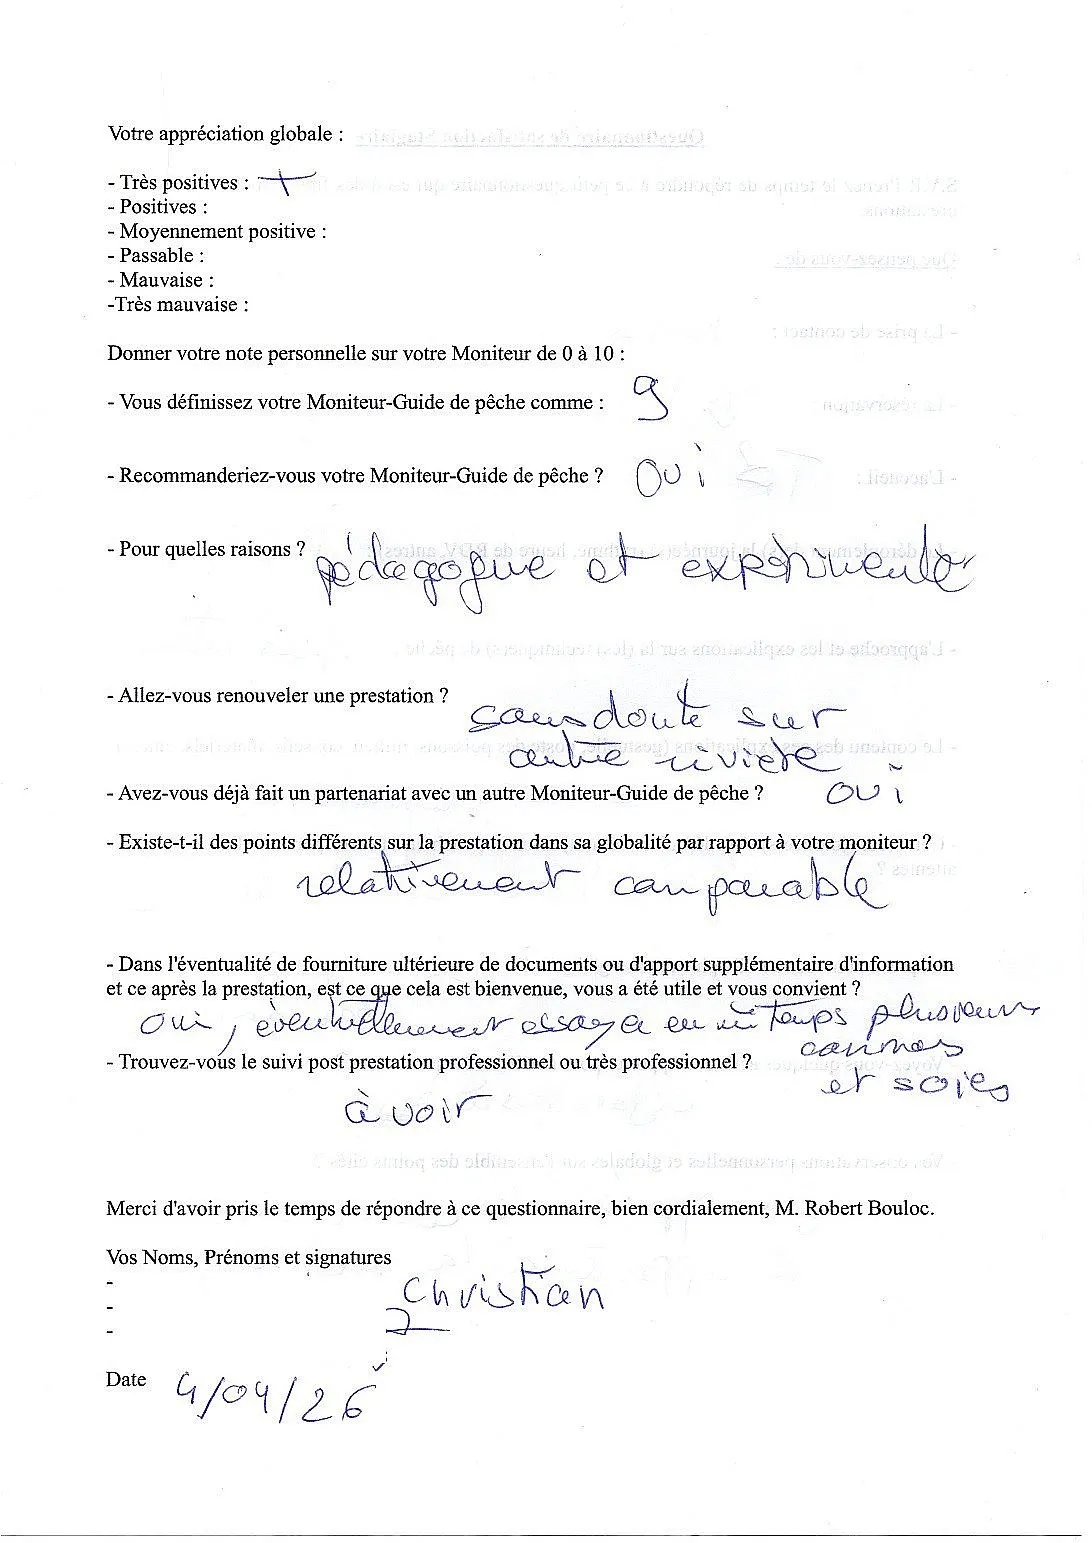 Votre appréciation globale :
- Très positives : +
- Positives :
- Moyennement positive :
- Passable :
- Mauvaise :
-Très mauvaise :
Donner votre note personnelle sur votre Moniteur de 0 à 10 :
- Vous définissez votre Moniteur-Guide de pêche comme : 9
- Recommanderiez-vous votre Moniteur-Guide de pêche ? oui
- Pour quelles raisons ? pédagogue et
- Allez-vous renouveler une prestation ? sans doute sur
autre rivière
- Avez-vous déjà fait un partenariat avec un autre Moniteur-Guide de pêche ? oui
- Existe-t-il des points différents sur la prestation dans sa globalité par rapport à votre moniteur ?
relativement comparable
- Dans l'éventualité de fourniture ultérieure de documents ou d'apport supplémentaire d'information
et ce après la prestation, est ce que cela est bienvenue, vous a été utile et vous convient ?
oui, éventuellement essayer en mi temps plusieurs
cannes
- Trouvez-vous le suivi post prestation professionnel ou très professionnel ?
et soies
à voir
Merci d'avoir pris le temps de répondre à ce questionnaire, bien cordialement, M. Robert Bouloc.
Vos Noms, Prénoms et signatures
-
- Christian
-
Date 4/04/26